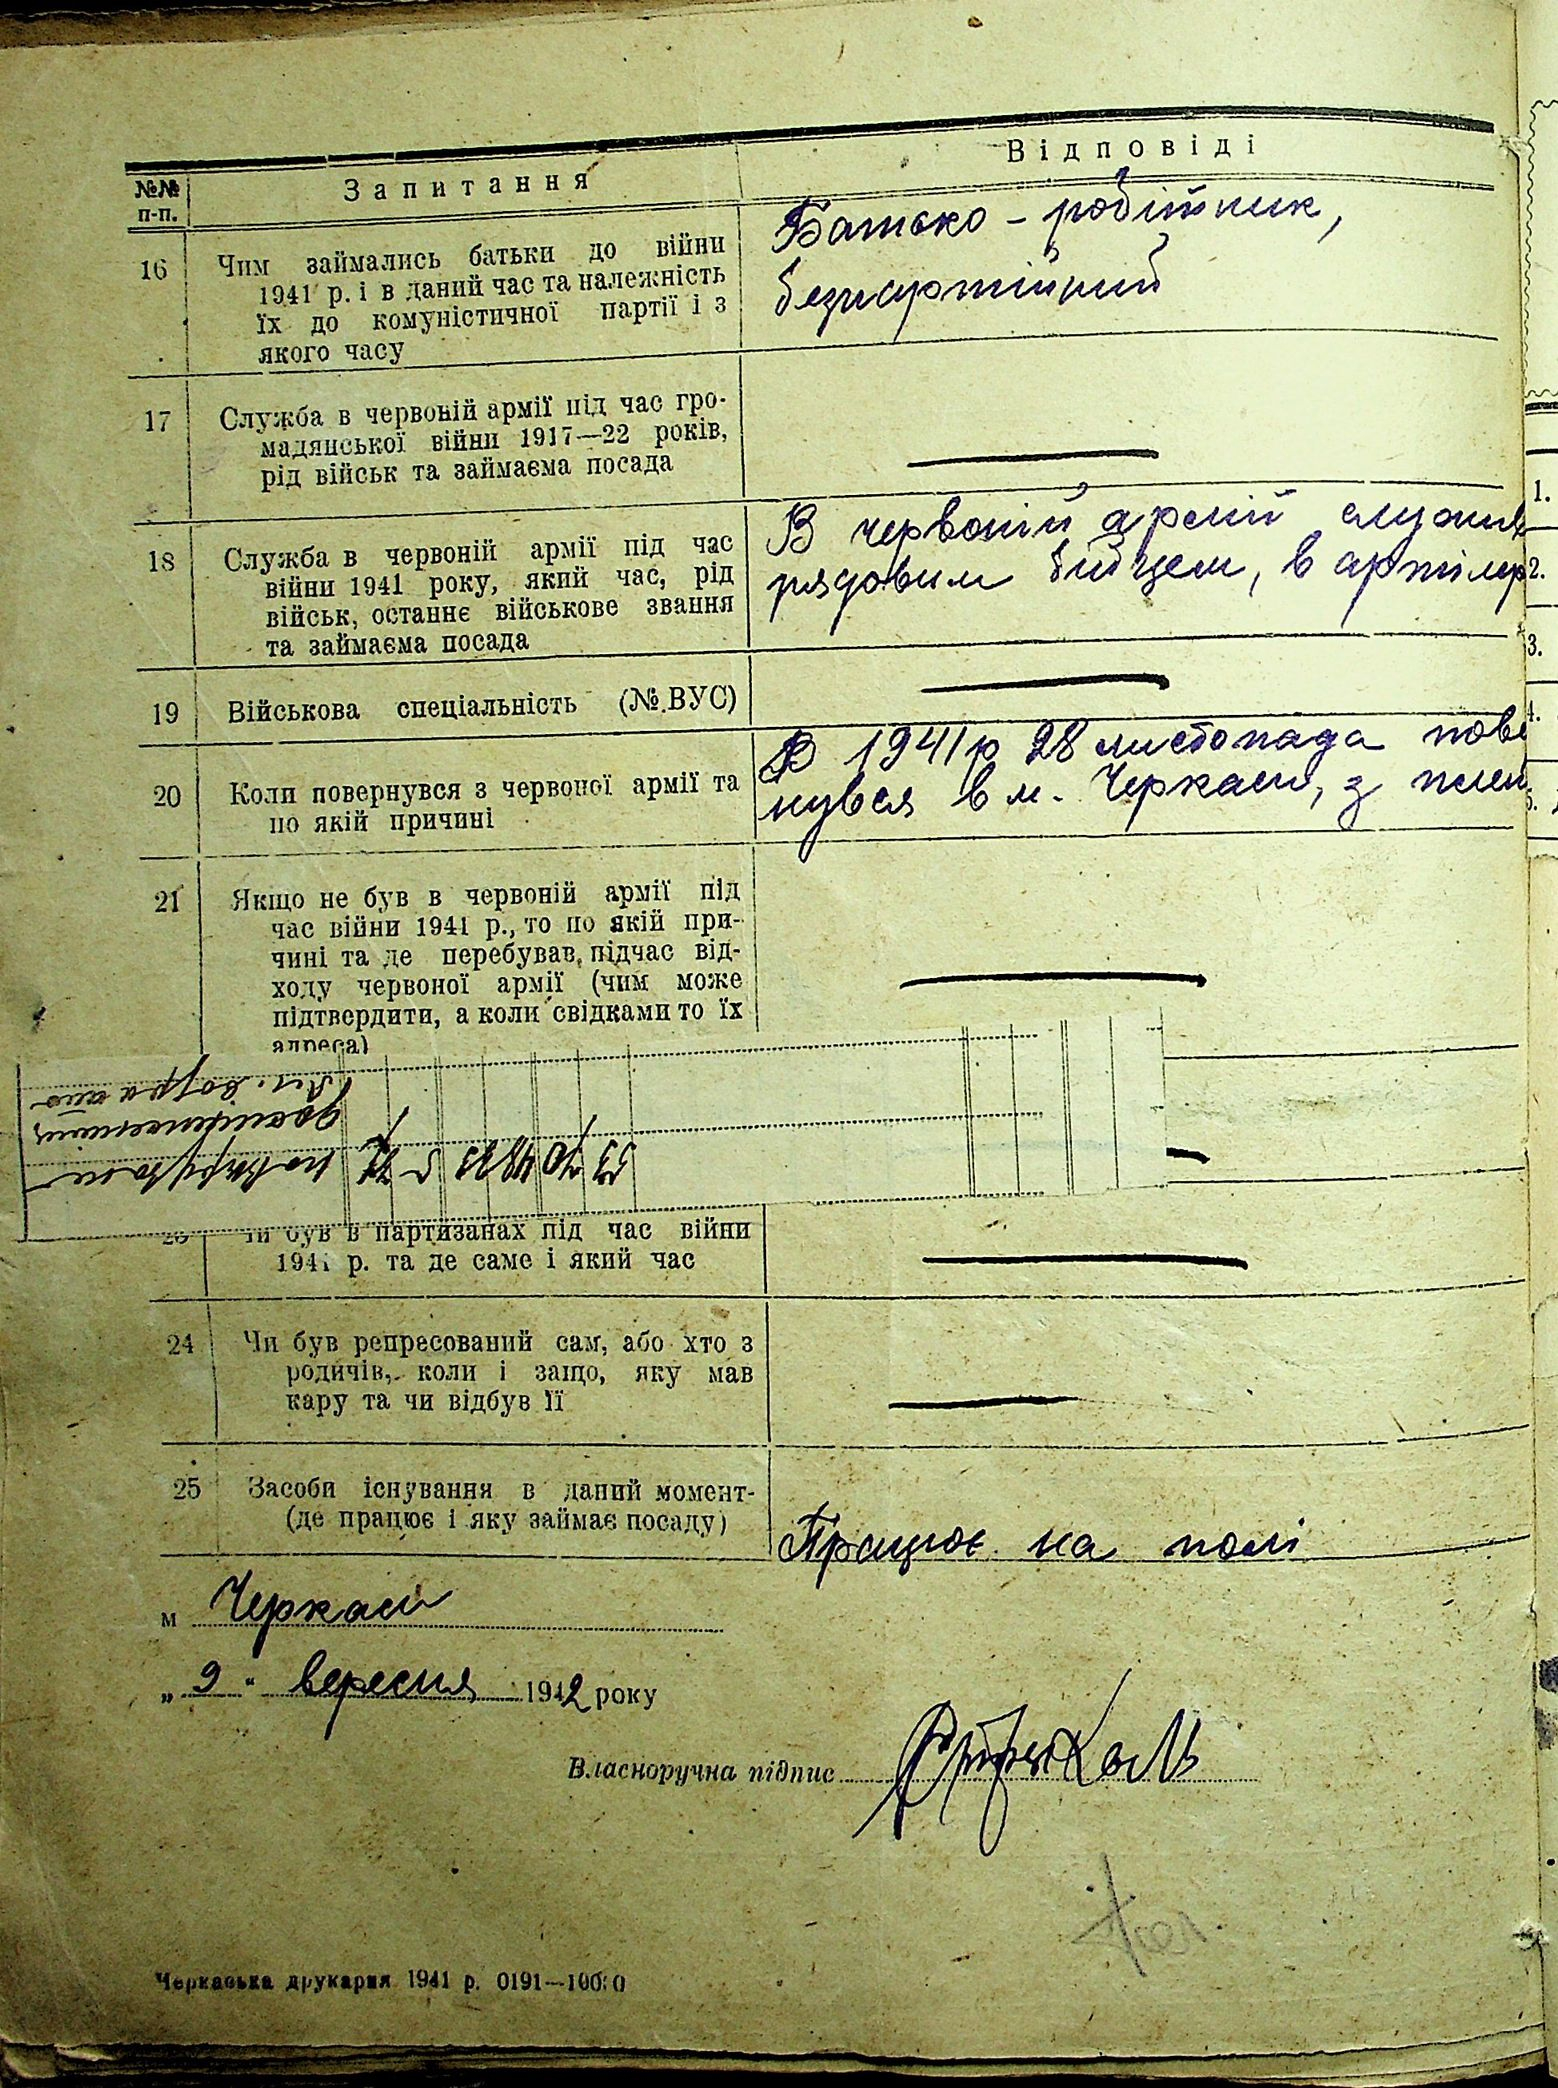 №№ п-п.
Запитання
Відповіді
16
Чим займались батьки до війни
1941 р. і в даний час та належність
їх до комуністичної партії і з
якого часу
Батько - робітник,
безпартійний
17
Служба в червоній армії під час гро-
мадянської війни 1917—22 років,
рід військ та займаєма посада
18
Служба в червоній армії під час
війни 1941 року, який час, рід
військ, останнє військове звання
та займаєма посада
В червоній армії служив
рядовим бійцем, в артилер
19
Військова спеціальність (№ ВУС)
20
Коли повернувся з червоної армії та
по якій причині
В 1941 р 28 листопада повер
нувся в м. Черкаси, з плен
21
Якщо не був в червоній армії під
час війни 1941 р., то по якій при-
чині та де перебував, підчас від-
ходу червоної армії (чим може
підтвердити, а коли свідками то їх
адреса)
Чи був в партизанах під час війни
1941 р. та де саме і який час
24
Чи був репресований сам, або хто з
родичів, коли і защо, яку мав
кару та чи відбув її
25
Засоби існування в даний момент-
(де працює і яку займає посаду)
Працює на полі
м Черкаси
„9" вересня 1942 року
Власноручна підпис
Черкаська друкарня 1941 р. 0191—
1.
2.
3.
4.
5.